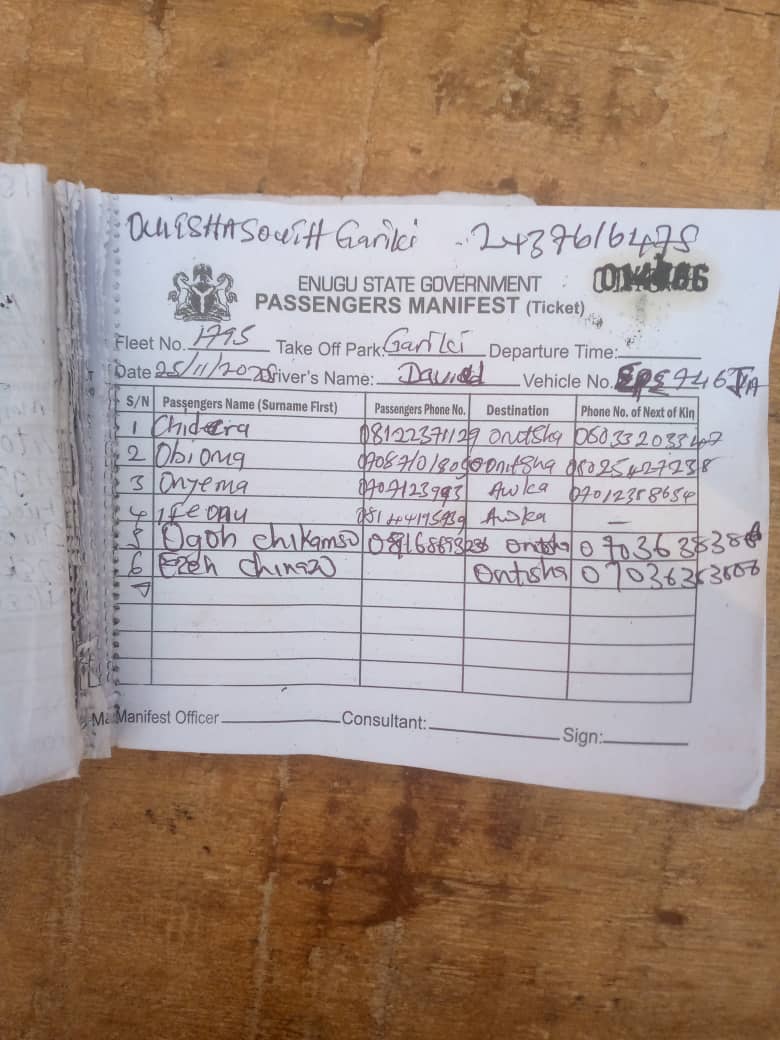 Gariki - 2437616475
ENUGU STATE GOVERNMENT
PASSENGERS MANIFEST (Ticket)
Fleet No. 1795 Take Off Park: Gariki Departure Time:
Date 25/11/2025 Driver's Name: David Vehicle No. 746
S/N Passengers Name (Surname First) Passengers Phone No. Destination Phone No. of Next of Kin
1 Chidera 08122371129 onitsha 08033203347
2 Obioma Onitsha 08025427238
3 Onyema 0707123993 Awka 07012358654
4 Ifeanyi Awka —
5 Ogoh chikamso onitsha
6 Ezeh chinazo Onitsha
7
Manifest Officer Consultant: Sign: